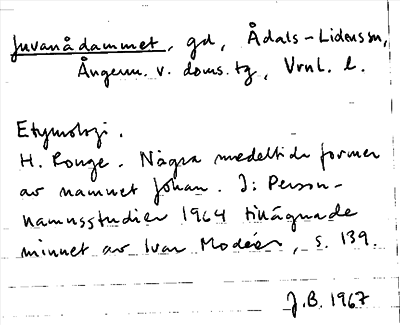 Juvanådammet, gd, Ådals-Lidens sn,
Ångerm. v. doms. tg, Vrnl. l.
Etymologi.
H. Ronge. Några medeltida former
av namnet Johan. I: Person-
namnsstudier 1964 tillägnade
minnet av Ivar Modéer, s. 139.
J.B. 1967